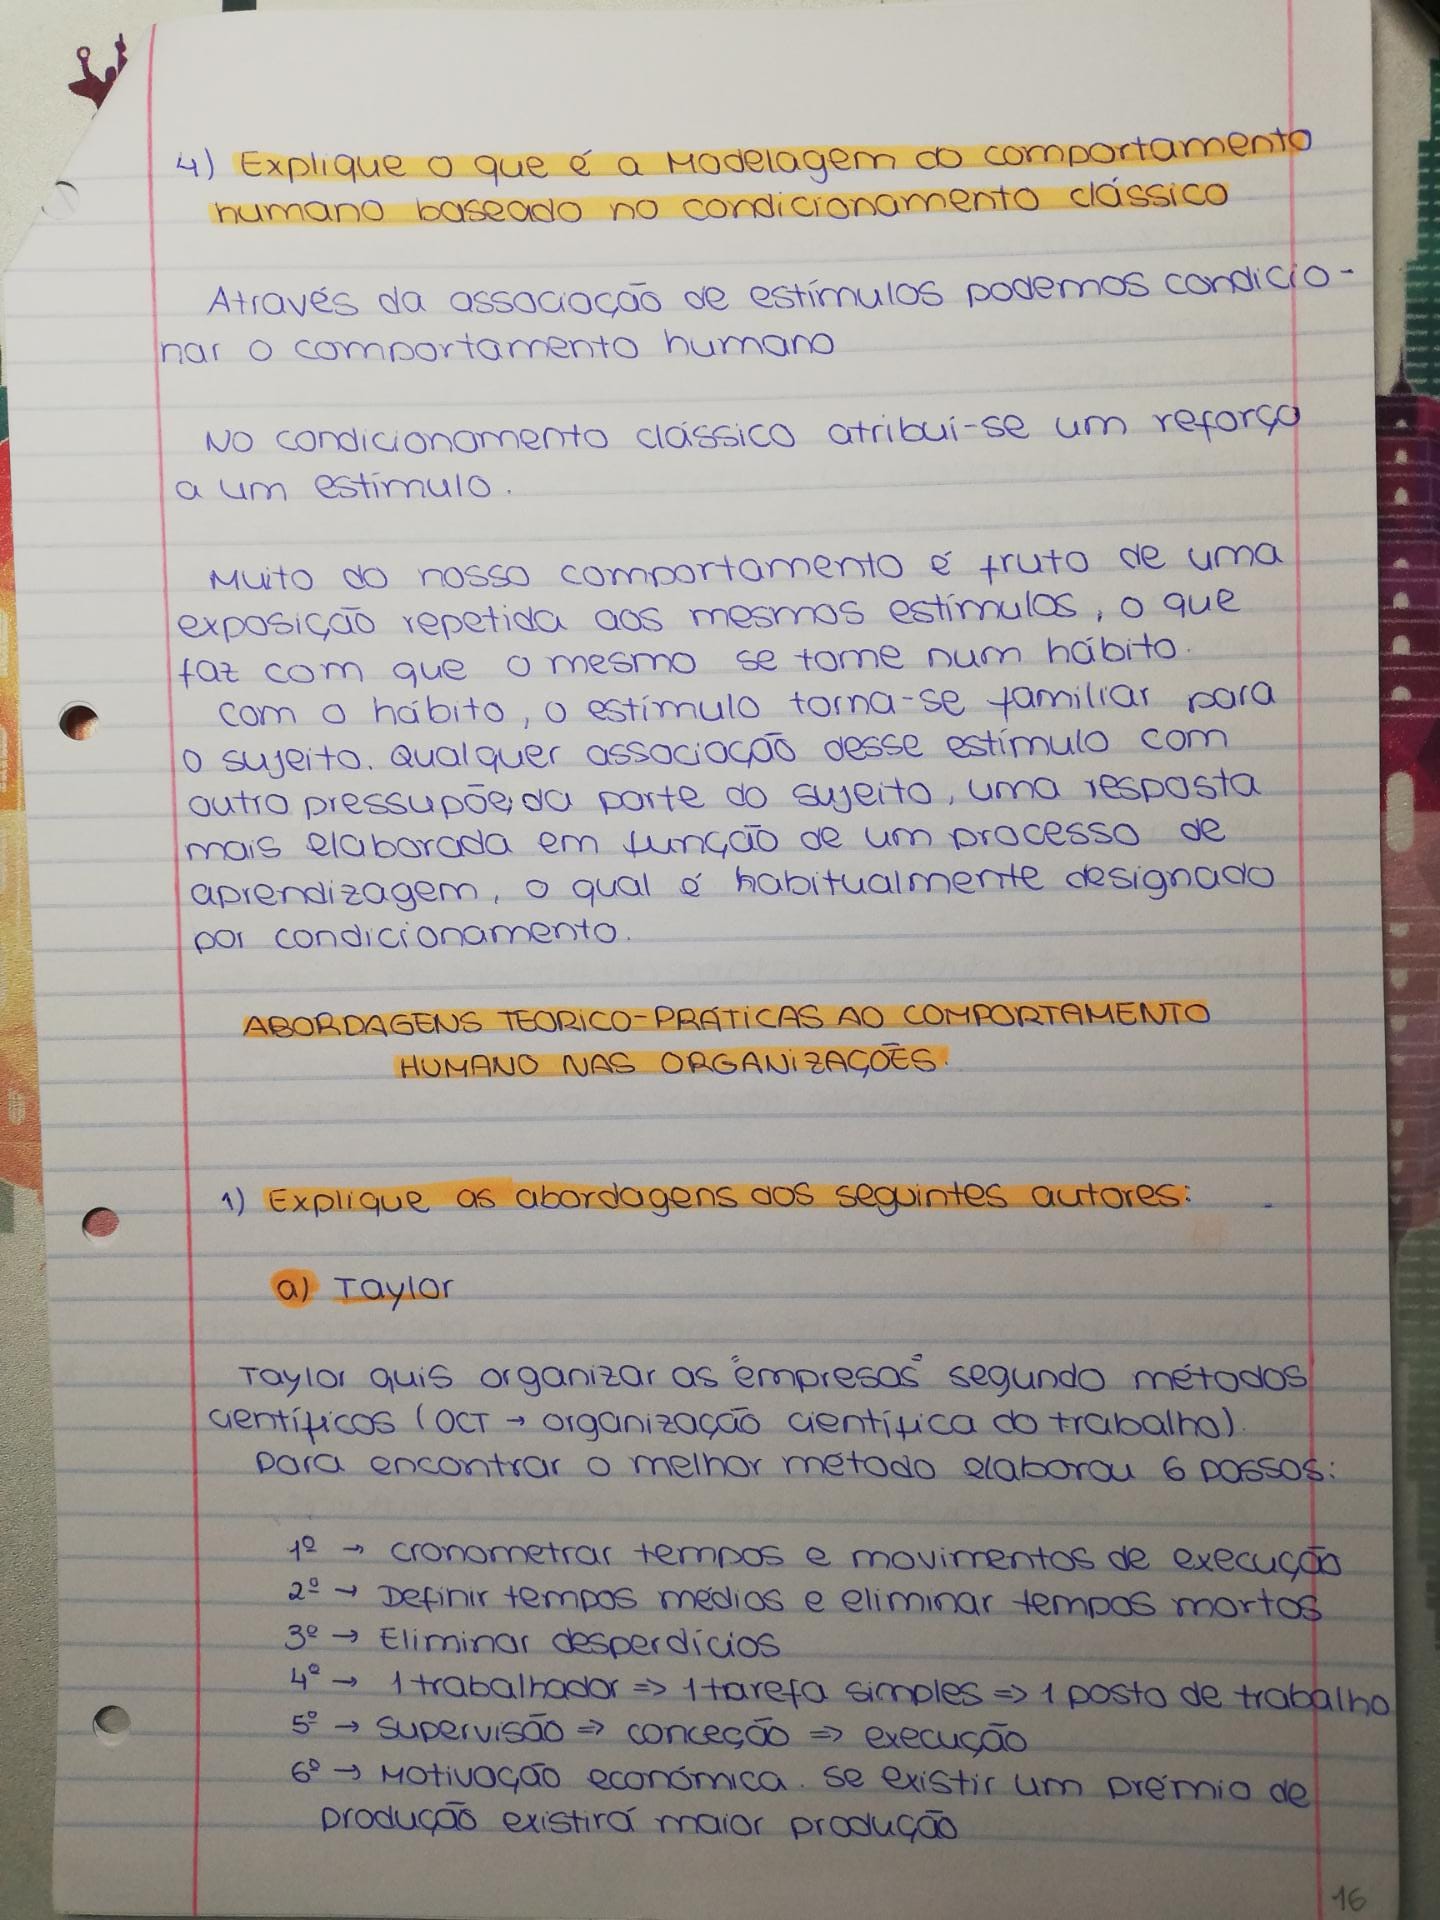 4) Explique o que é a Modelagem do comportamento
humano baseado no condicionamento clássico
Através da associação de estímulos podemos condicio-
nar o comportamento humano
No condicionamento clássico atribui-se um reforço
a um estímulo.
Muito do nosso comportamento é fruto de uma
exposição repetida aos mesmos estímulos, o que
faz com que o mesmo se torne num hábito.
Com o hábito, o estímulo torna-se familiar para
o sujeito. Qualquer associação desse estímulo com
outro pressupõe, da parte do sujeito, uma resposta
mais elaborada em função de um processo de
aprendizagem, o qual é habitualmente designado
por condicionamento.
ABORDAGENS TEORICO-PRÁTICAS AO COMPORTAMENTO
HUMANO NAS ORGANIZAÇÕES.
1) Explique as abordagens dos seguintes autores:
a) Taylor
Taylor quis organizar as "empresas" segundo métodos
científicos (OCT → organização científica do trabalho).
Para encontrar o melhor método elaborou 6 passos:
1º → cronometrar tempos e movimentos de execução
2º → Definir tempos médios e eliminar tempos mortos
3º → Eliminar desperdícios
4º → 1 trabalhador => 1 tarefa simples => 1 posto de trabalho
5º → Supervisão => conceção => execução
6º → Motivação económica. Se existir um prémio de
produção existirá maior produção
16